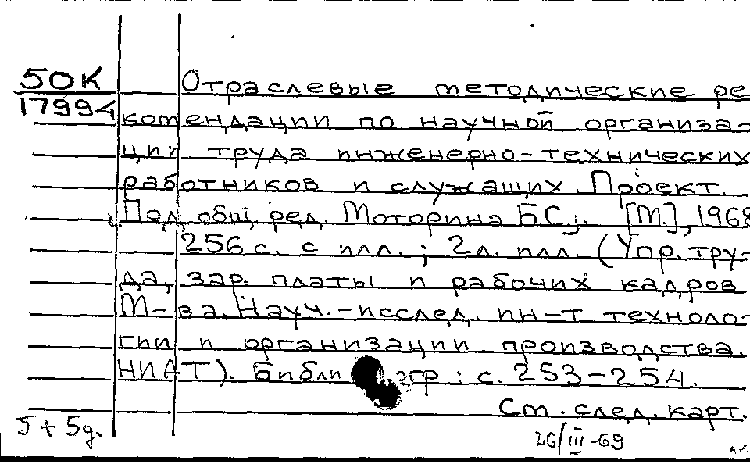 50К
17994
Отраслевые методические ре
комендации по научной организа-
ции труда инженерно-технических
работников и служащих. Проект.
Под общ. ред. Моторина Б С,. [М.], 1968
256 с. с илл.; 2 л. илл. (Упр. тру-
да, зар. платы и рабочих кадров
М-ва. Науч.-исслед. ин-т техноло-
гии и организации производства.
НИАТ). Библи гр: с. 253-254.
См. след. карт.
5+5д.
26/III-69